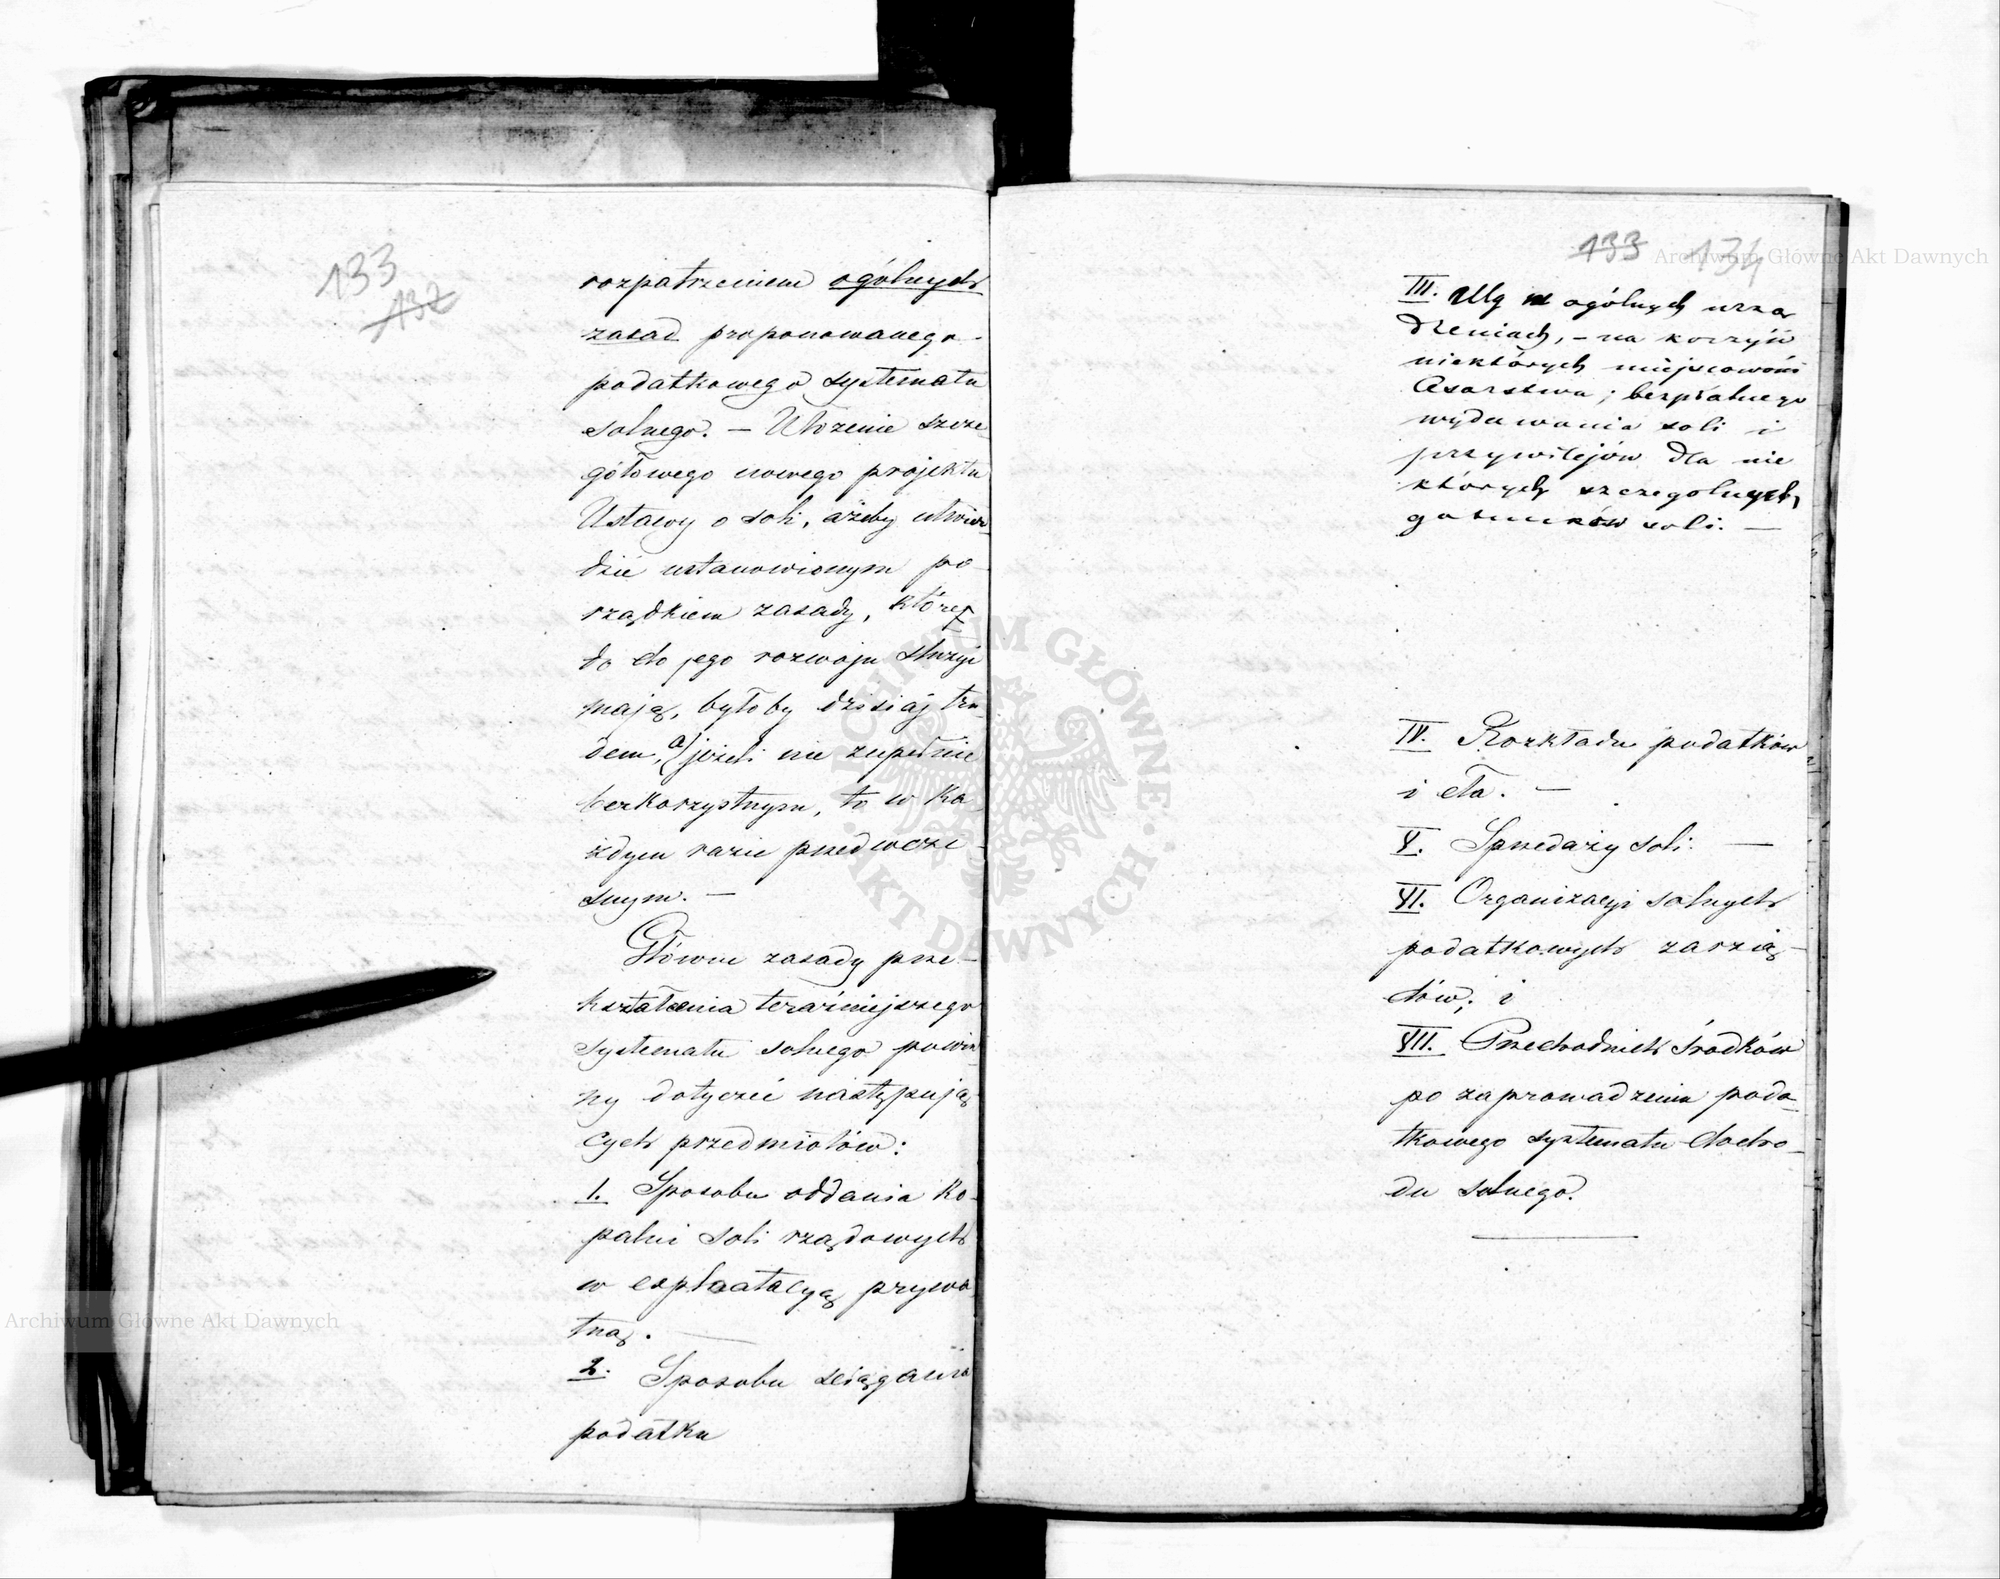 133
132
rozpatrzeniem ogólnych
zasad proponowanego
podatkowego systematu
solnego. — Ułożenie szcze
gółowego nowego projektu
Ustawy o soli, ażeby utwier
dzić ustanowionym po
rządkiem zasady, które
do jego rozwoju służyć
mają, byłoby dzisiaj tru
dem, a) jeżeli nie zupełnie
bezkorzystnym, to w ka
żdym razie przedwcze
snym. —
Główne zasady prze-
kształcenia teraźniejszego
systematu solnego powin
ny dotyczéć następują
cych przedmiotów:
1. Sposobu oddania ko
palni soli rządowych
w exploatacyą prywa
tną. —
2. Sposobu ściągania
podatku
133 134
III. Ulg w ogólnych urzą
dzeniach, – na korzyść
niektórych miejscowości
Cesarstwa; bezpłatnego
wydawania soli i
przywilejów dla nie
których szczególnych
gatunków soli. —
IV. Rozkładu podatków
i cła. —
V. Sprzedaży soli. —
VI. Organizacyi solnych
podatkowych zarzą-
dów; i
VII. Przechodnich środków
po zaprowadzeniu poda-
tkowego systematu docho-
du solnego.
Archiwum Główne Akt Dawnych
Archiwum Główne Akt Dawnych
ARCHIWUM GŁÓWNE AKT DAWNYCH